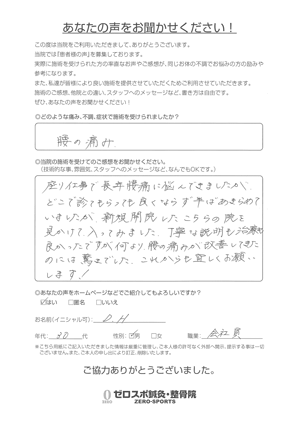 あなたの声をお聞かせください！
この度は当院をご利用いただきまして、ありがとうございます。
当院では『患者様の声』を募集しております。
実際に施術を受けられた方の率直なお声やご感想が、同じお体の不調でお悩みの方の励みや
参考になります。
また、私達が皆様により良い施術を提供させていただくためご利用させていただきます。
施術のご感想、他院との違い、スタッフへのメッセージなど、書き方は自由です。
ぜひ、あなたの声をお聞かせください！
◎どのような痛み、不調、症状で施術を受けられましたか？
腰の痛み
◎当院の施術を受けてのご感想をお聞かせください。
（技術的な事、雰囲気、スタッフへのメッセージなど、なんでもOKです。）
座り仕事で長年腰痛に悩んできましたが
どこで診てもらっても良くならず半ばあきらめて
いましたが、新規開院したこちらの院を
見かけて入ってみました。丁寧な説明も治療も
良かったですが何より腰の痛みが改善してきた
のには驚きでした。これからも宜しくお願い
します！
◎あなたの声をホームページなどでご紹介してもよろしいですか？
はい □匿名 □いいえ
お名前(イニシャル可)： D.H
年代： 30 代 性別： 男 □女 職業： 会社員
＊こちら用紙にご記入いただきました情報は厳重に管理し、ご本人様の許可なく外部へ開示、提示する事は一切
ございません。また、ご本人の申し出により訂正、削除いたします。
ご協力ありがとうございました。
ゼロスポ鍼灸・整骨院
ZERO-SPORTS